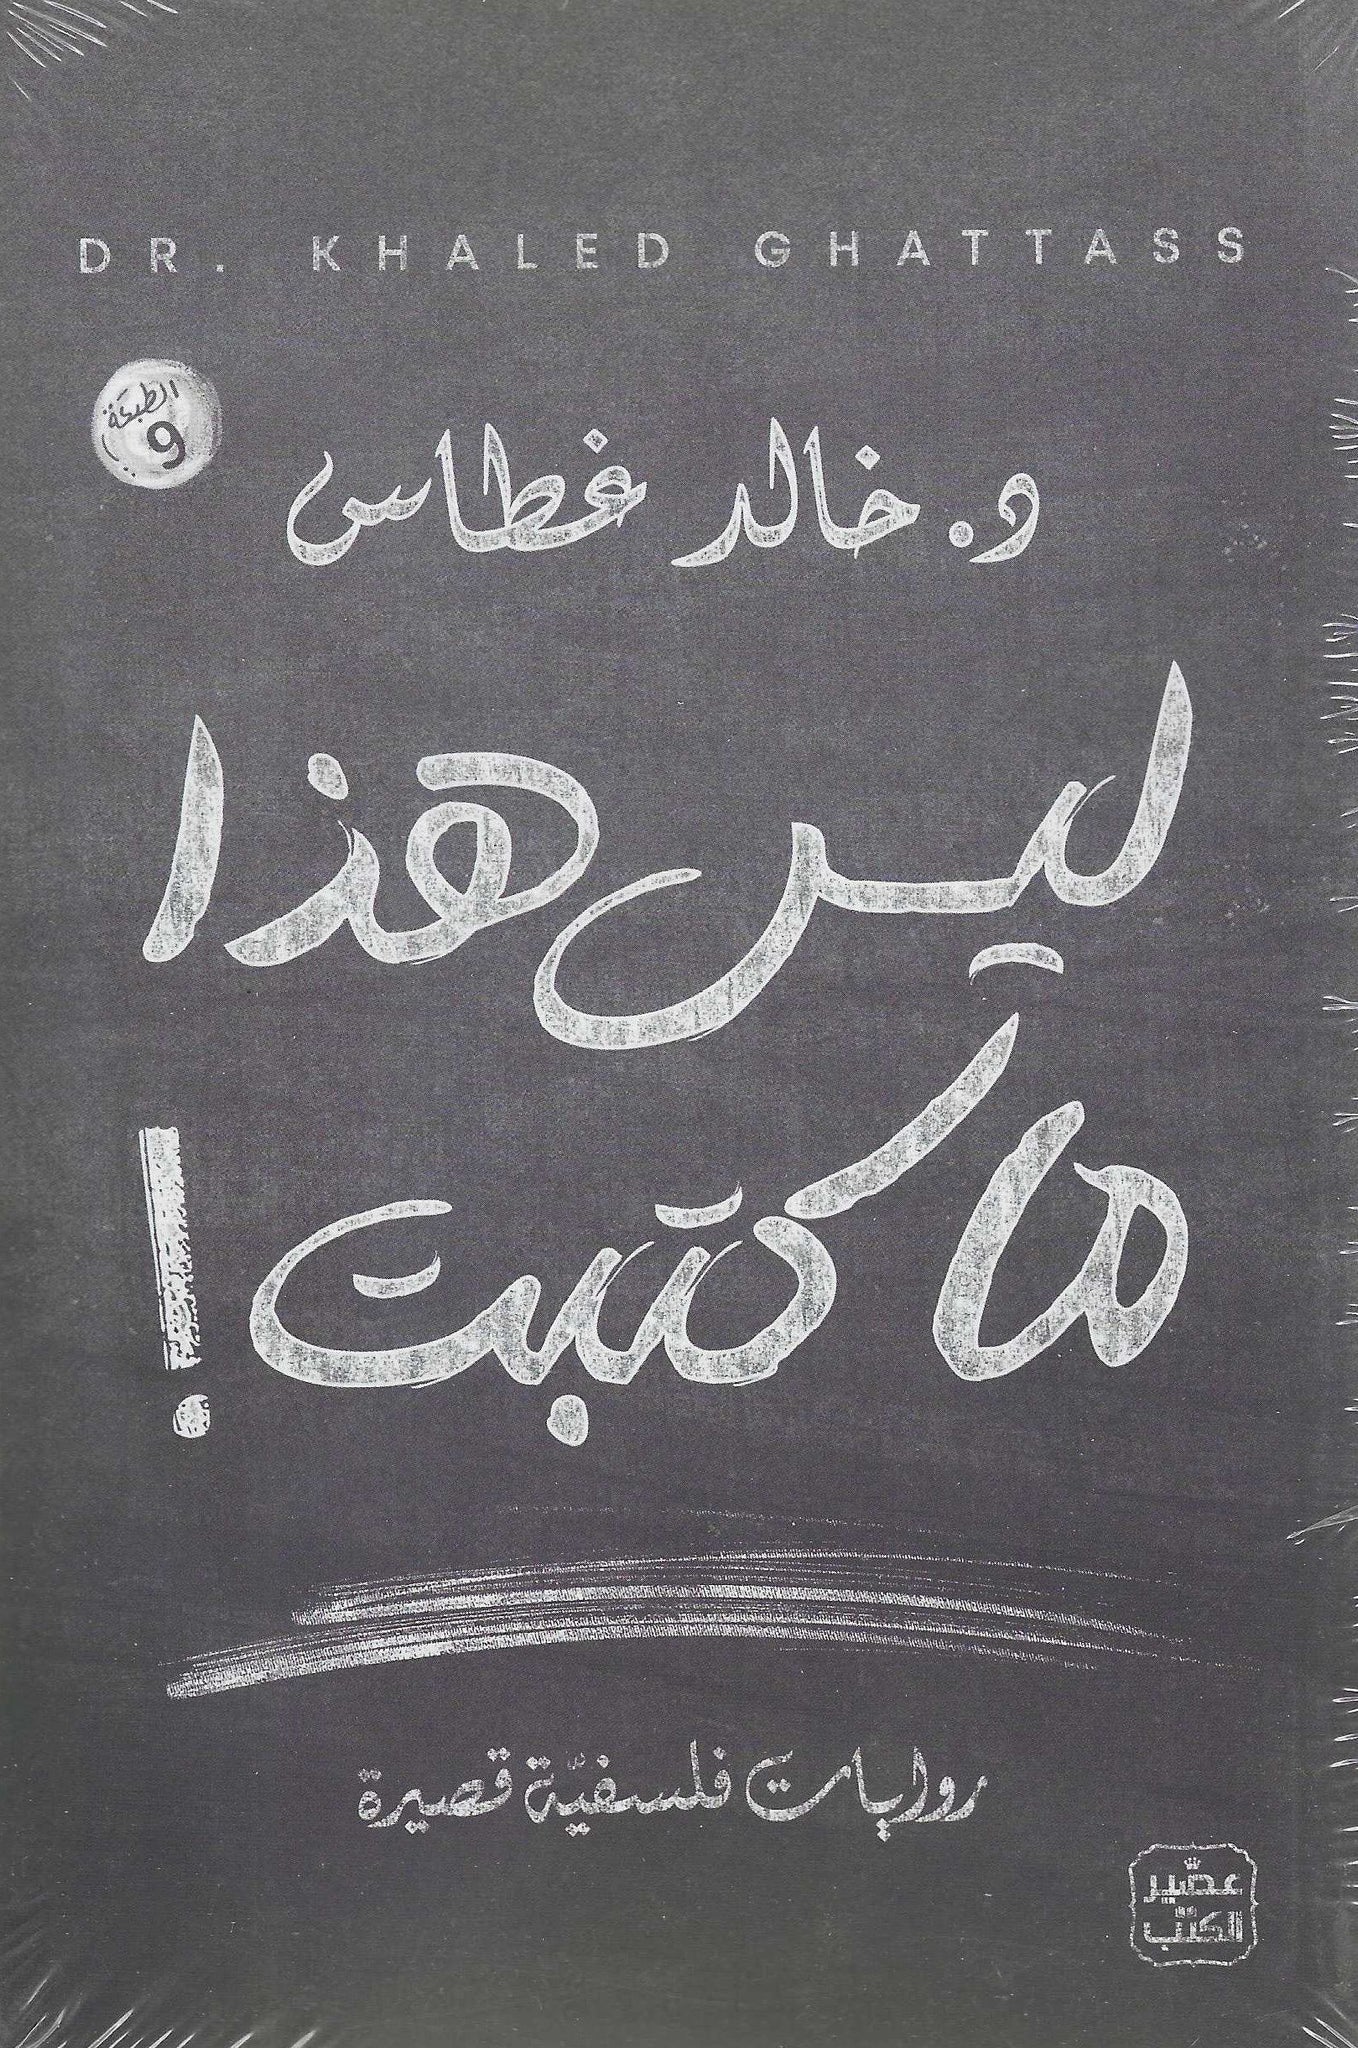 DR. KHALED GHATTASS
الطبعة
9
د. خالد غطاس
ليس هذا
ما كتبت!
روايات فلسفيّة قصيرة
عصير
الكتب